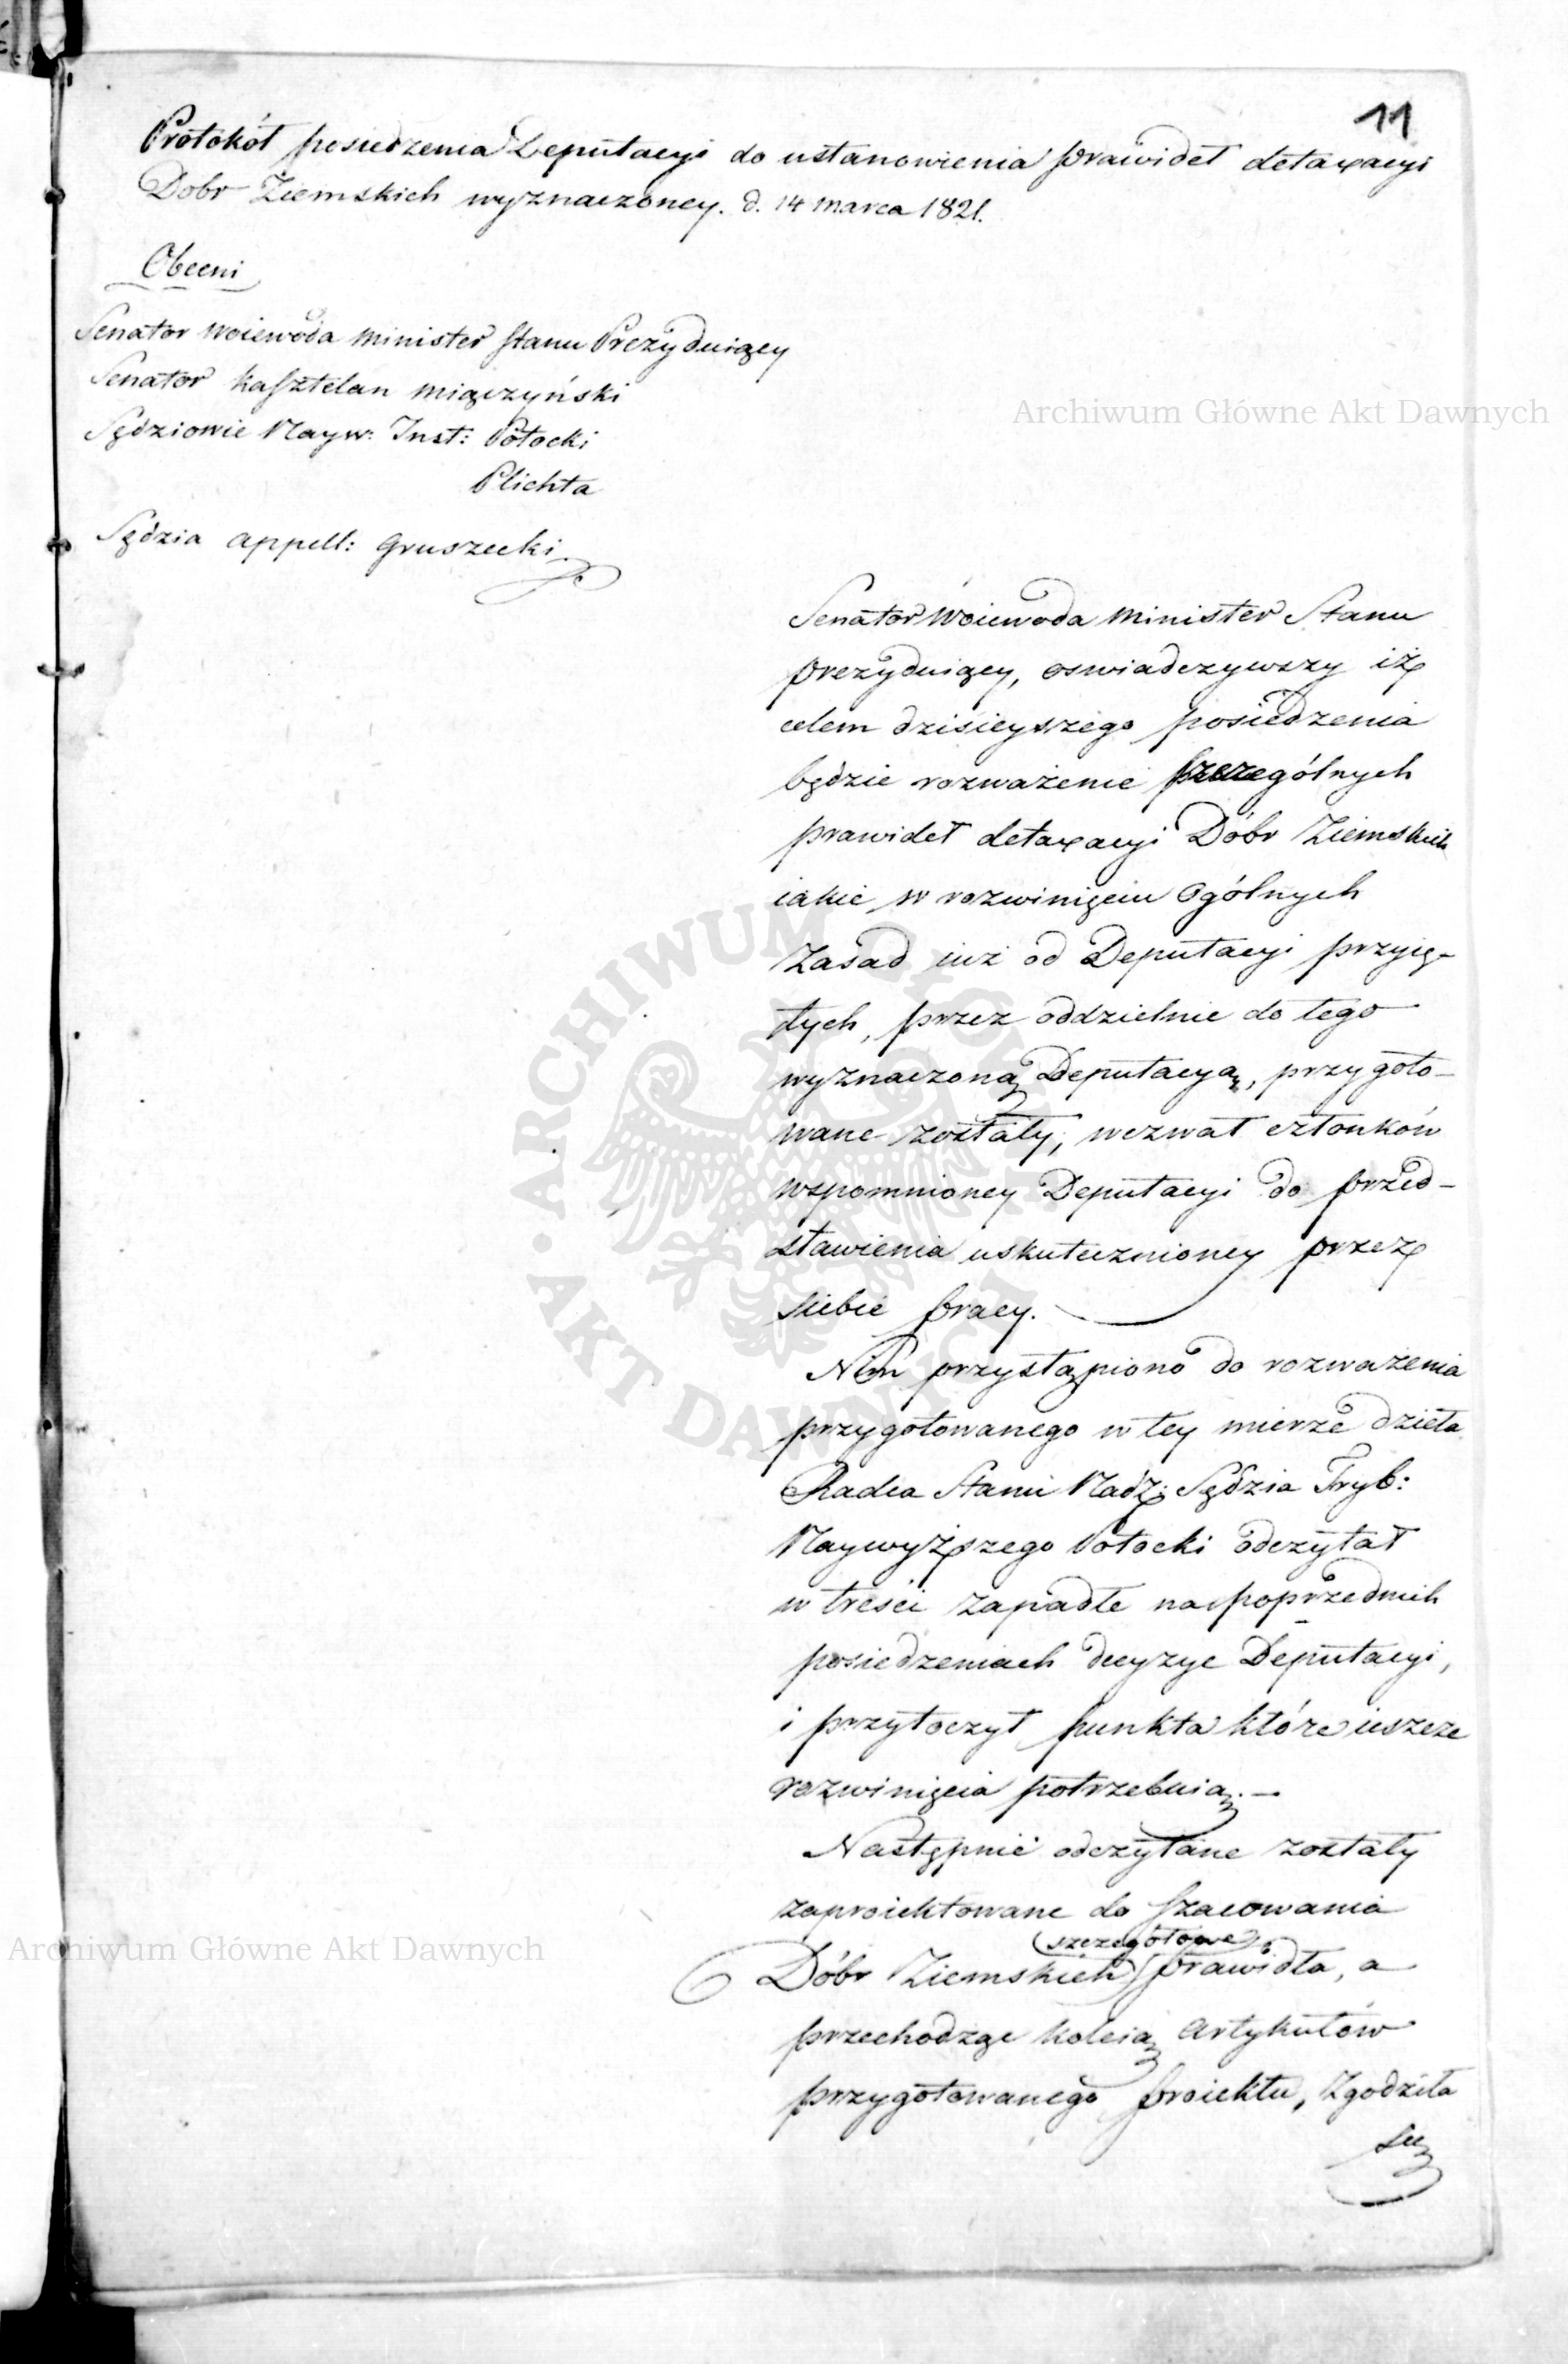 11
Protokół posiedzenia Deputacyi do ustanowienia prawideł detaxacyi
Dobr Ziemskich wyznaczoney. d. 14 Marca 1821.
Obecni
Senator Woiewoda Minister Stanu Prezyduiący
Senator Kasztelan Miączyński
Sędziowie Nayw: Inst: Potocki
Plichta
Sędzia appell: Gruszecki
Archiwum Główne Akt Dawnych
Senator Woiewoda Minister Stanu
prezyduiący, oswiadczywszy iż
celem dzisieyszego posiedzenia
będzie rozważenie szczególnych
prawideł detaxacyi Dóbr Ziemskich
iakie w rozwinięciu Ogólnych
Zasad iuż od Deputacyi przyię-
tych, przez oddzielnie do tego
wyznaczoną Deputacyą, przygoto-
wane zostały, wezwał członków
wspomnioney Deputacyi do przed-
stawienia uskutecznioney przez
siebie pracy.
Nim przystąpiono do rozważenia
przygotowanego w tey mierze dzieła
Radca Stanu Nadz: Sędzia Tryb:
Naywyższego Potocki odczytał
w treści zapadłe na poprzednich
posiedzeniach decyzye Deputacyi,
i przytoczył punkta które ieszcze
rozwinięcia potrzebuią. –
Następnie odczytane zostały
zaproiektowane do szacowania
szczegółowe
Dóbr Ziemskich prawidła, a
przechodząc koleią Artykułów
przygotowanego proiektu, zgodziła
się
ARCHIWUM GŁÓWNE AKT DAWNYCH
Archiwum Główne Akt Dawnych